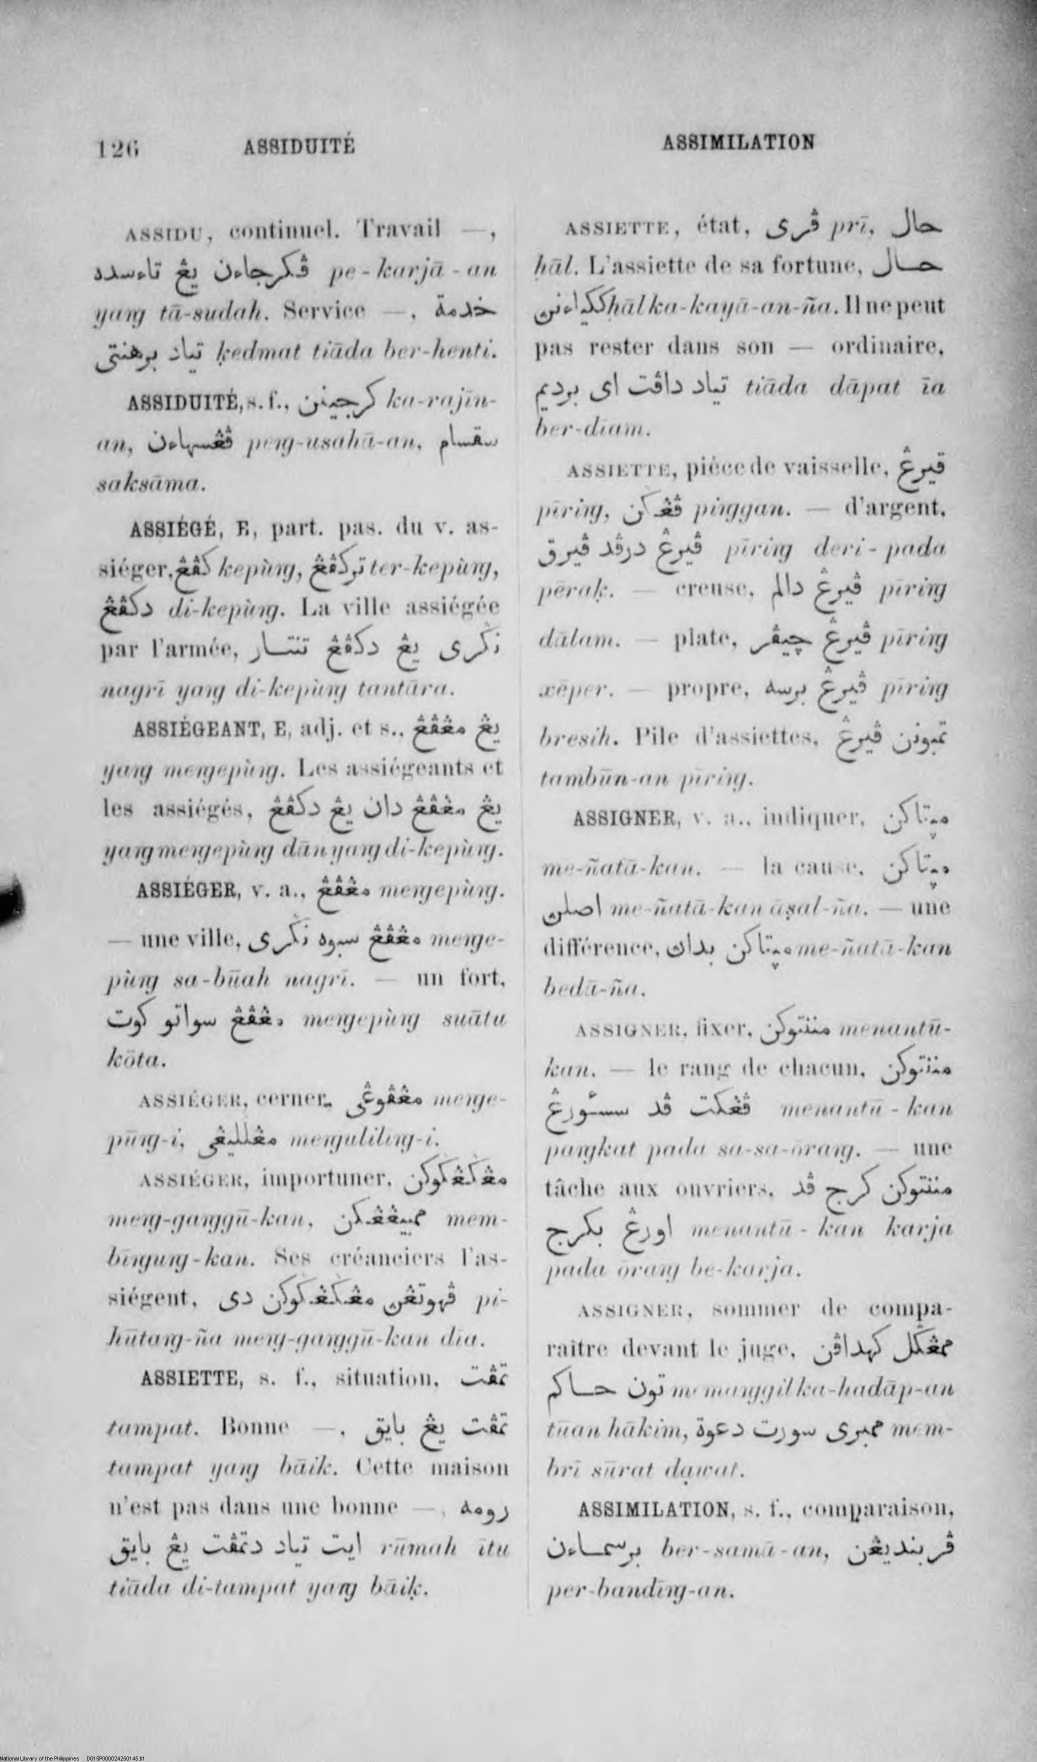 126 ASSIDUITÉ
ASSIMILATION
ASSIDU, continuel. Travail —,
ڤكرجاءن يڠ تاءسده pe-karjā-an
yaṅg tā-sudah. Service —, خدمة
تياد برهنتي ḳedmat tiāda ber-henti.
ASSIDUITÉ, s. f., كرجينن ka-rajīn-
an, ڤڠسهاءن peṅg-usahā-an, سقسام
saksāma.
ASSIÉGÉ, E, part. pas. du v. as-
siéger, كڤڠ kepùṅg, تركڤڠ ter-kepùṅg,
دكڤڠ di-kepùṅg. La ville assiégée
par l'armée, نڬري يڠ دكڤڠ تنتار
nagrī yaṅg di-kepùṅg tantāra.
ASSIÉGEANT, E, adj. et s., يڠ مڠڤڠ
yaṅg meṅgepùṅg. Les assiégeants et
les assiégés, يڠ مڠڤڠ دان يڠ دكڤڠ
yaṅg meṅgepùṅg dān yaṅg di-kepùṅg.
ASSIÉGER, v. a., مڠڤڠ meṅgepùṅg.
— une ville, مڠڤڠ سبوه نڬري meṅge-
pùṅg sa-būah nagrī. — un fort,
مڠڤڠ سواتو كوت meṅgepùṅg suātu
kōta.
ASSIÉGER, cerner, مڠڤوڠي meṅge-
pūṅg-i, مڠلليڠي meṅguliliṅg-i.
ASSIÉGER, importuner, مڠڬڠڬوكن
meṅg-gaṅggū-kan, ممبيڠڠكن mem-
bīṅguṅg-kan. Ses créanciers l'as-
siégent, ڤهوتڠن مڠڬڠڬوكن دي pi-
hūtaṅg-ña meṅg-gaṅggū-kan dīa.
ASSIETTE, s. f., situation, تمڤت
tampat. Bonne —, تمڤت يڠ بايق
tampat yaṅg bāik. Cette maison
n'est pas dans une bonne —, رومه
ايت تياد دتمڤت يڠ بايق rūmah ītu
tiāda di-tampat yaṅg bāiḳ.
ASSIETTE, état, ڤري prī, حال
ḥāl. L'assiette de sa fortune, حال
ككياءنن ḥāl ka-kayā-an-ña. Il ne peut
pas rester dans son — ordinaire,
تياد داڤت اي برديم tiāda dāpat īa
ber-dīam.
ASSIETTE, piéce de vaisselle, ڤيرڠ
pīriṅg, ڤڠڬن piṅggan. — d'argent,
ڤيرڠ درڤد ڤيرق pīriṅg deri-pada
pēraḳ. — creuse, ڤيرڠ دالم pīriṅg
dālam. — plate, ڤيرڠ چيڤر pīriṅg
xēper. — propre, ڤيرڠ برسه pīriṅg
bresih. Pile d'assiettes, تمبونن ڤيرڠ
tambūn-an pīriṅg.
ASSIGNER, v. a., indiquer, مڽتاكن
me-ñatā-kan. — la cause, مڽتاكن
اصلن me-ñatā-kan āṣal-ña. — une
différence, مڽتاكن بدان me-ñatā-kan
bedā-ña.
ASSIGNER, fixer, مننتوكن menantū-
kan. — le rang de chacun, مننتوكن
ڤڠكت ڤد سساورڠ menantū-kan
paṅgkat pada sa-sa-ōraṅg. — une
tâche aux ouvriers, مننتوكن كرج ڤد
اورڠ بكرج menantū-kan karja
pada ōraṅg be-karja.
ASSIGNER, sommer de compa-
raître devant le juge, ممڠڬل كهداڤن
تون حاكم memaṅggil ka-hadāp-an
tūan hākim, ممبري سورت دعوة mem-
brī sūrat dạwat.
ASSIMILATION, s. f., comparaison,
برسماءن ber-samā-an, ڤربنديڠن
per-bandiṅg-an.
National Library of the Philippines